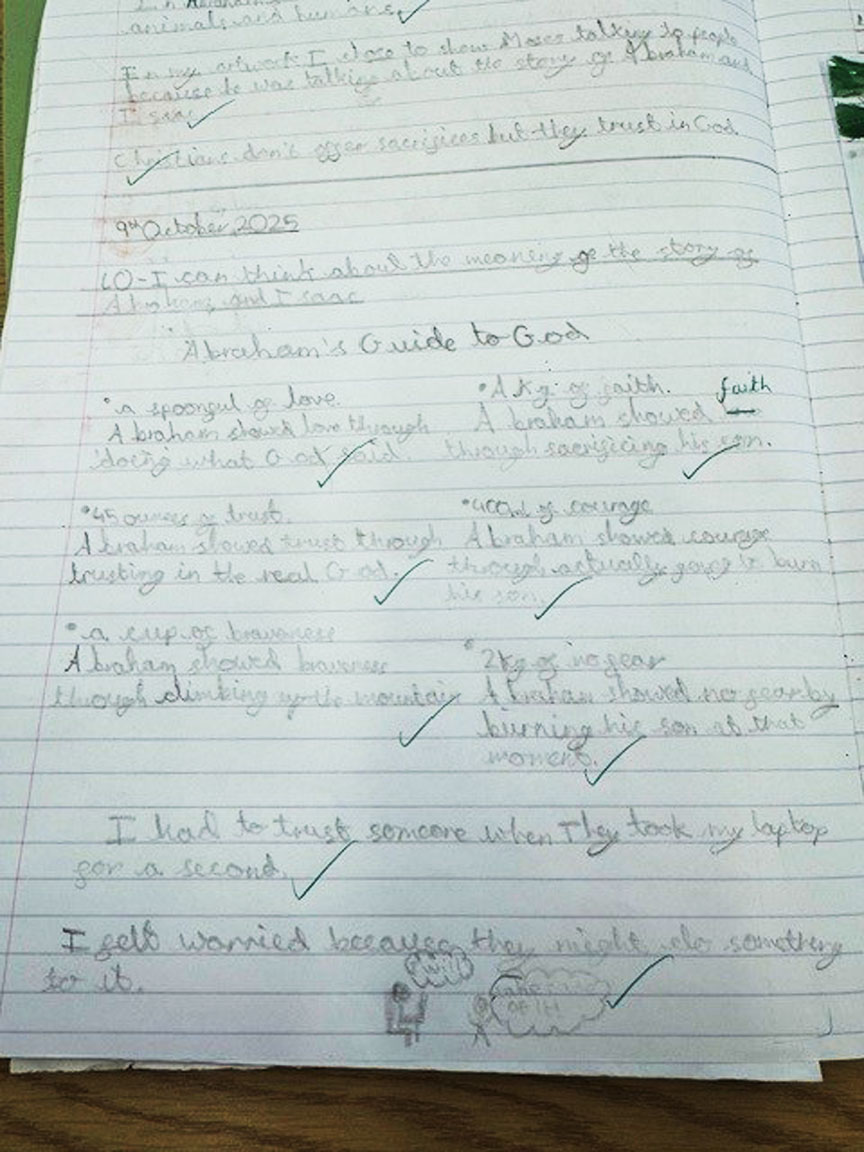 animals and humans.
In my artwork I chose to show Moses talking to people
because he was talking about the story of Abraham and
Isaac
Christians don't offer sacrifices but they trust in God.
9th October 2025
LO - I can think about the meaning of the story of
Abraham and Isaac
Abraham's Guide to God
• a spoonful of love.
Abraham showed love through
doing what God said.
• A Kg of faith.
Abraham showed faith
through sacrificing his son.
• 45 ounces of trust.
Abraham showed trust through
trusting in the real God.
• 400ml of courage
Abraham showed courage
through actually going to burn
his son.
• a cup of braveness
Abraham showed braveness
through climbing up the mountain
• 2kg of no fear
Abraham showed no fear by
burning his son at that
moment.
I had to trust someone when They took my laptop
for a second.
I felt worried because they might do something
to it.